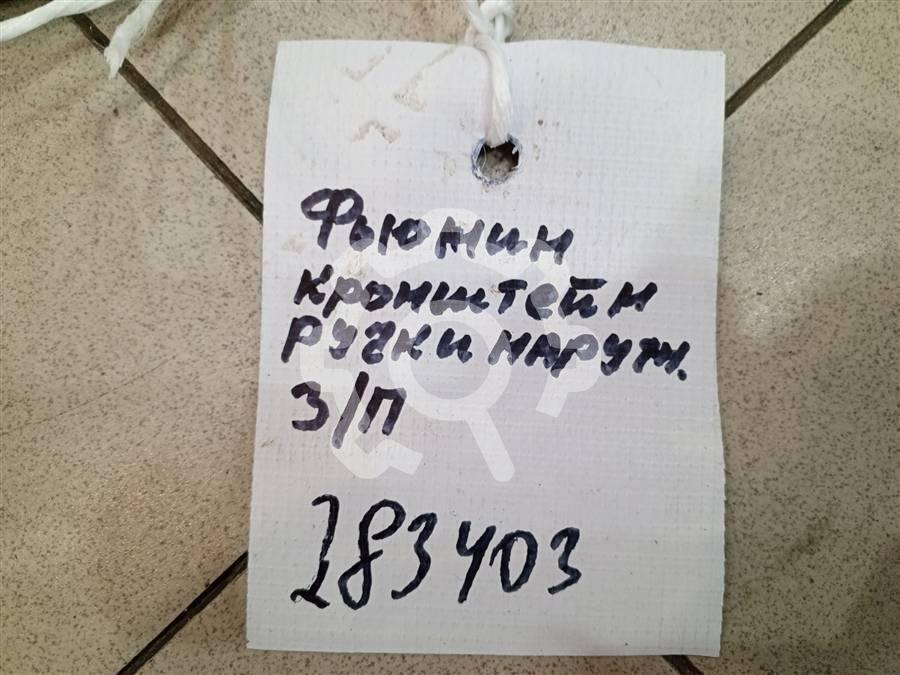 Фьюжин
кронштейн
ручки наруж.
З/П
283403